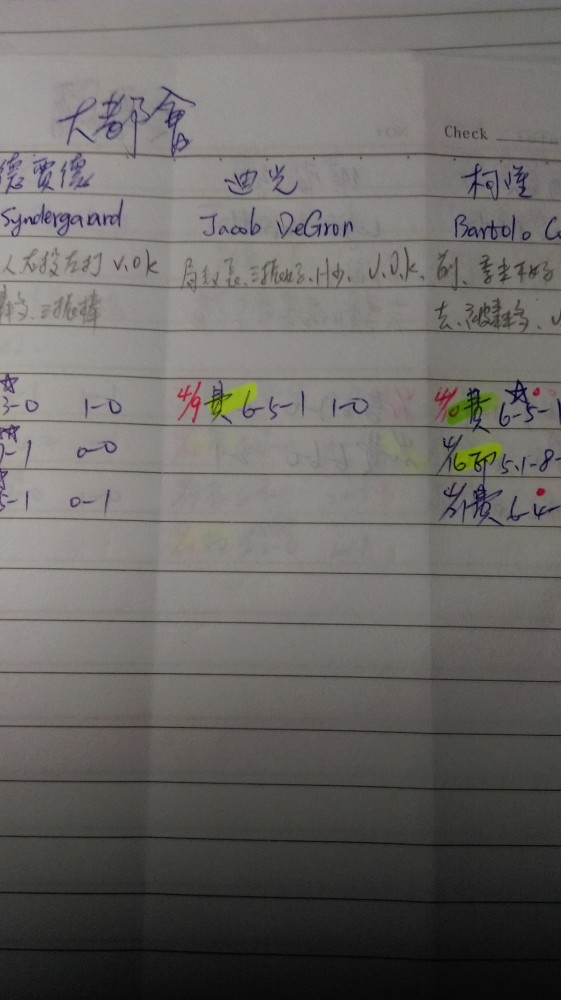 大都會
Check
德賈德 迪光 柯瓏
Syndergaard Jacob DeGron Bartolo C
人右投左打 v.o.k 局數長、三振好、H少、v.o.k. 前、季
三振 去、被
3-0 1-0 4/9 費 6-5-1 1-0 4/10 費 6-5-1
-1 0-0 4/16 印 5.1-8-
5-1 0-1 4/21 費 6-4-